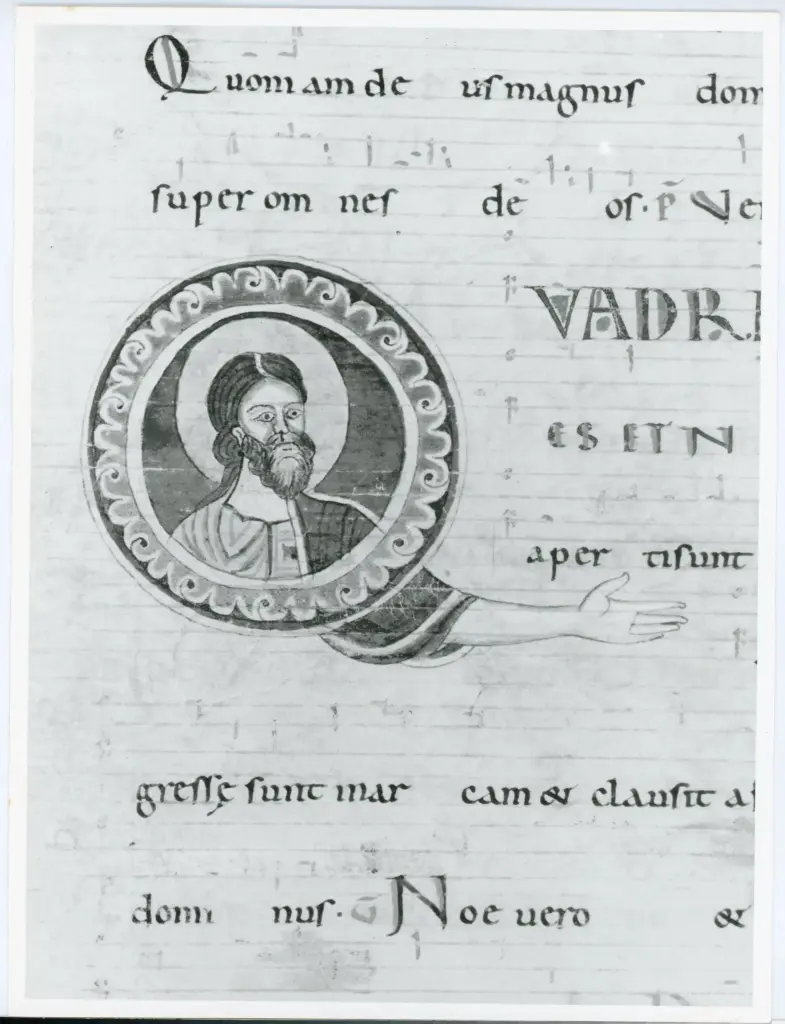 Quoniam de us magnus dom
super om nes de os. p̄ Ve
VADRA
ES ET N
aper ti sunt
gressę sunt in ar cam & clausit a
domi nus. Noe uero &